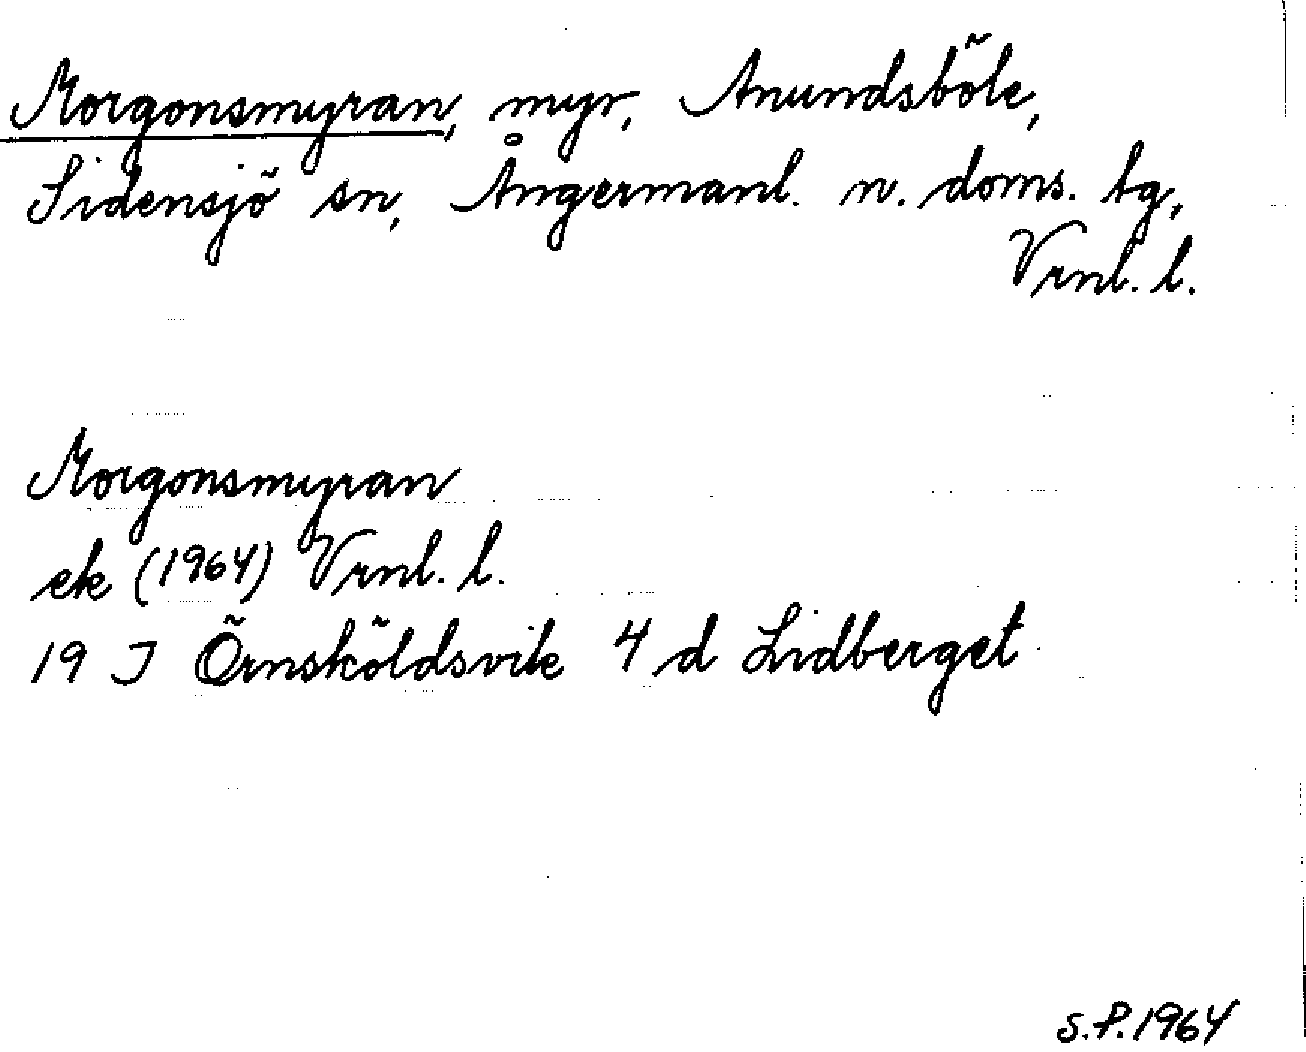 Morgonsmyran, myr, Anundsböle,
Sidensjö sn, Ångermanl. n. doms. tg,
Vrnl. l.
Morgonsmyran
ek (1964) Vrnl. l.
19 J Örnsköldsvik 4 d Lidberget
S.P. 1964